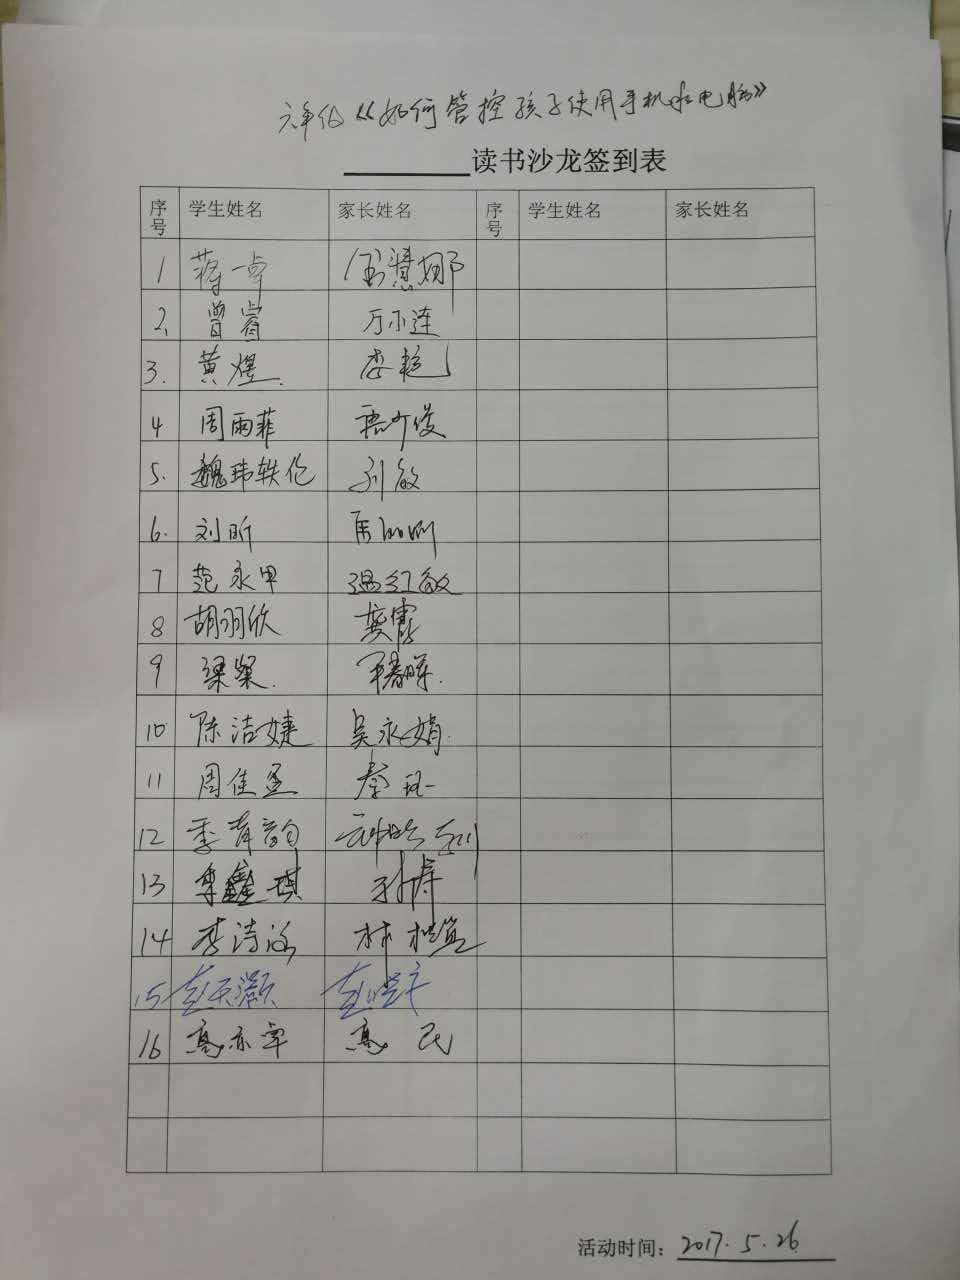 《如何管控孩子使用手机和电脑》
读书沙龙签到表
序号 学生姓名 家长姓名 序号 学生姓名 家长姓名
1 蒋一卓
2 曾睿 万小连
3. 黄煜 李艳
4 周雨菲
5. 魏玮轶伦 刘敏
6. 刘昕
7 范永甲 温红敏
8 胡羽欣 龚霞
9 梁粲 王春晖
10 陈洁婕 吴永娟
11 周佳
12 季青韵
13 李鑫琪 孙涛
14 李诗涵 林
15
16 高亦卓 高民
活动时间: 2017.5.26